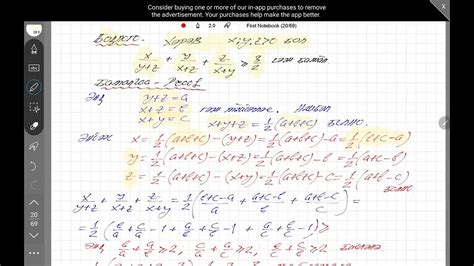 Consider buying one or more of our in-app purchases to remove
the advertisement. Your purchases help make the app better.
2.0
First Notebook (20/69)
Бодлого. Хэрэв x,y,z>0 бол
x/(y+z) + y/(x+z) + z/(x+y) ≥ 3/2 гэж батал
Баталгаа-Proof
Энд y+z=a
x+z=b гэж тэмдэглэе.
x+y=c x+y+z=1/2(a+b+c) болно.
Эндээс x=1/2(a+b+c)-(y+z)=1/2(a+b+c)-a=1/2(b+c-a)
y=1/2(a+b+c)-(x+z)=1/2(a+b+c)-b=1/2(a+c-b)
z=1/2(a+b+c)-(x+y)=1/2(a+b+c)-c=1/2(a+b-c)
x/(y+z) + y/(x+z) + z/(x+y) = 1/2((b+c-a)/a + (a+c-b)/b + (a+b-c)/c) =
=1/2(b/a + c/a -1 + a/b + c/b -1 + a/c + b/c -1) ≥
Энд b/a + a/b ≥2, c/a + a/c ≥2, c/b + b/c ≥2
20
69